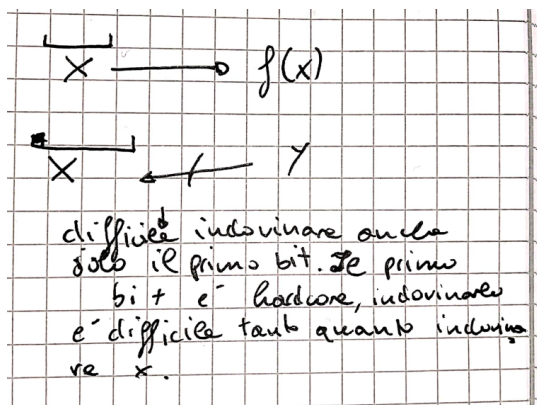 X f(x)
X Y
difficile indovinare anche
solo il primo bit. Se primo
bit e' hardcore, indovinarlo
e' difficile tanto quanto indovina
re x.